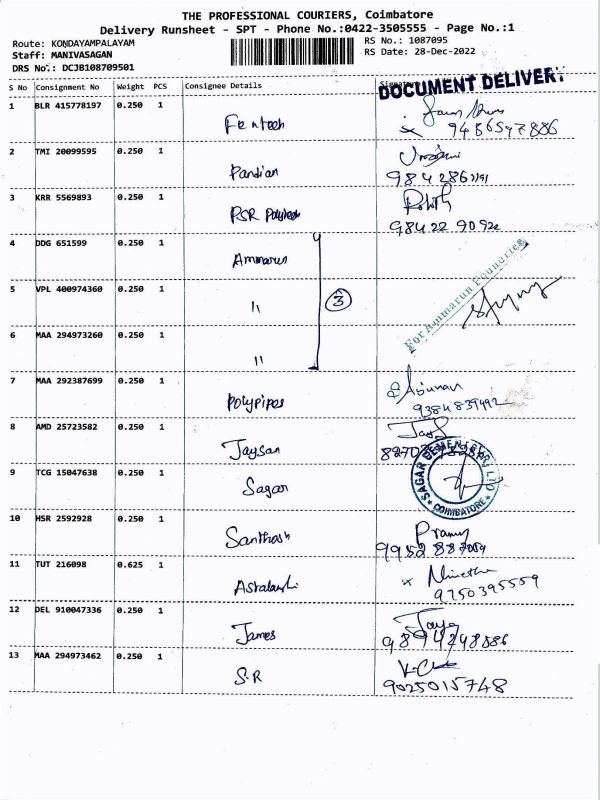 THE PROFESSIONAL COURIERS, Coimbatore
Delivery Runsheet - SPT - Phone No.:0422-3505555 - Page No.:1
Route: KONDAYAMPALAYAM
Staff: MANIVASAGAN
DRS No.: DCJB108709501
RS No.: 1087095
RS Date: 28-Dec-2022
S No Consignment No Weight PCS Consignee Details
DOCUMENT DELIVERY
1 BLR 415778197 0.250 1 Fentech
9486597886
2 TMI 20099595 0.250 1 Pandian
3 KRR 5569893 0.250 1 PSR Polytech
98422 9092
4 DDG 651599 0.250 1 Ammarun
5 VPL 400974360 0.250 1 "
3
For Ammarun Foundries
6 MAA 294973260 0.250 1 "
7 MAA 292387699 0.250 1 Polypipes
9384839492
8 AMD 25723582 0.250 1 Jaysan
9 TCG 15047638 0.250 1 Sagar
COIMBATORE
10 HSR 2592928 0.250 1 Santhosh
11 TUT 216098 0.625 1
x 9750395559
12 DEL 910047336 0.250 1 James
13 MAA 294973462 0.250 1 S.R
9025015748